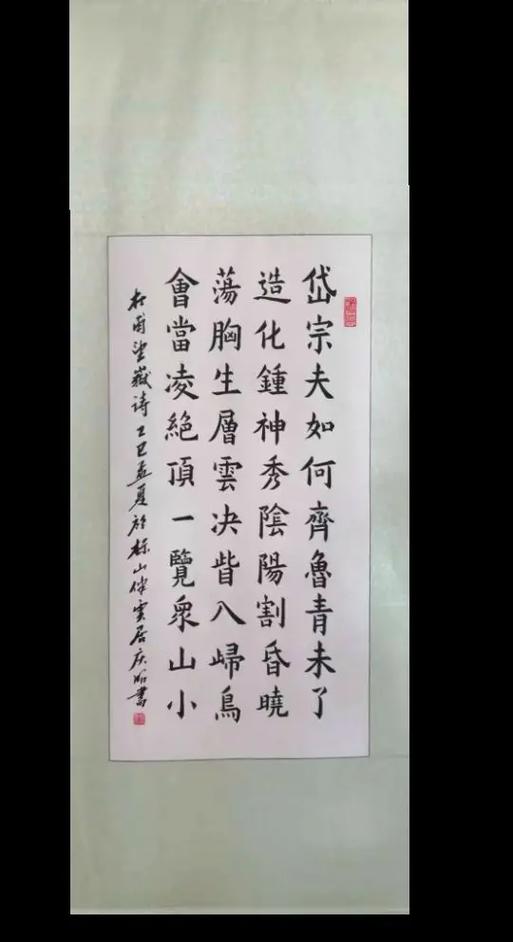 岱宗夫如何齊魯青未了
造化鍾神秀陰陽割昏曉
蕩胸生層雲决眥入歸鳥
會當凌絶頂一覽眾山小
杜甫望嶽诗乙巳孟夏於标山伴雲居庆書